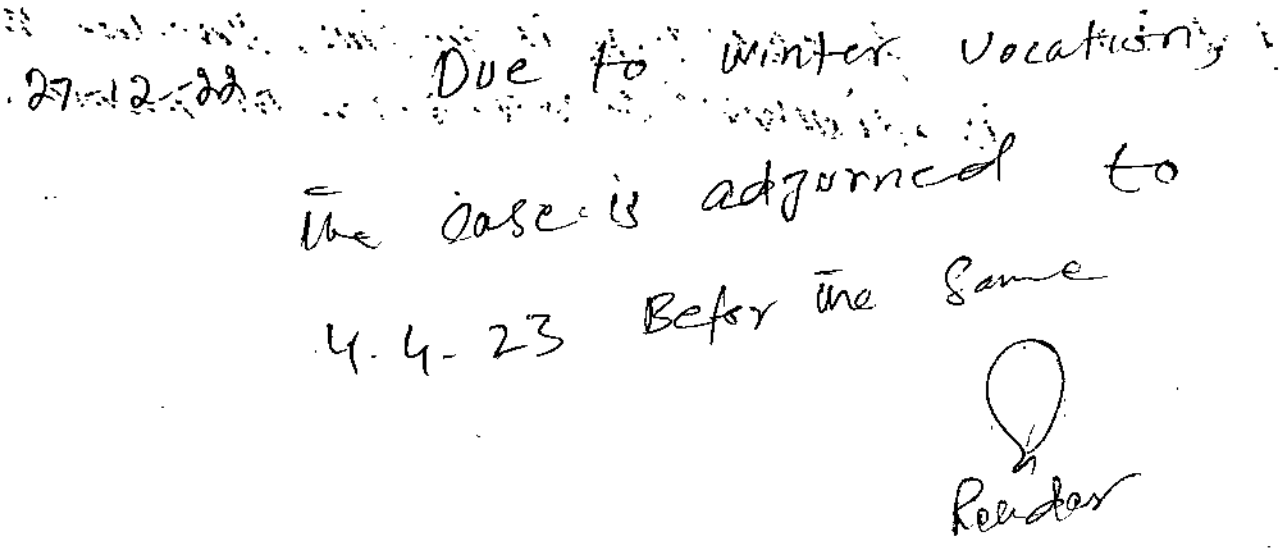 27-12-22 Due to winter vocation,
The case is adjurned to
4.4-23 Befor the Same
Reader